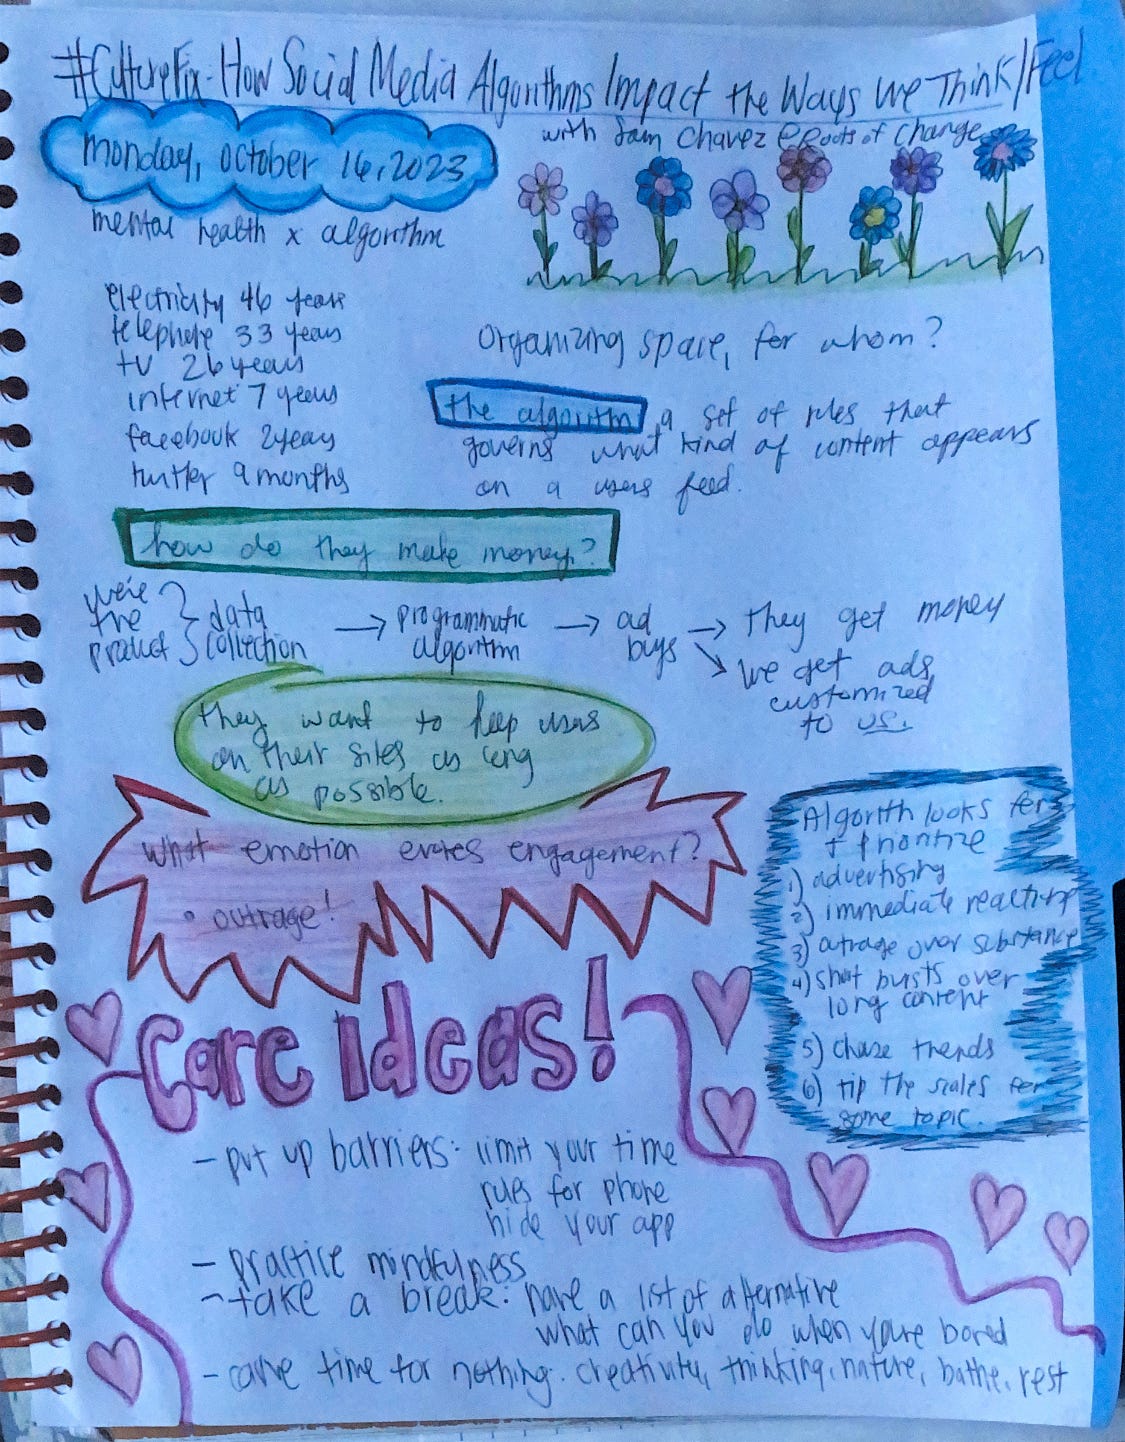 #CultureFix-How Social Media Algorithms Impact the Ways We Think/Feel
with Sam Chavez @Roots of Change
monday, october 16, 2023
mental health x algorithm
electricity 46 years
telephone 33 years
tv 26 years
internet 7 years
facebook 2 years
twitter 9 months
Organizing space, for whom?
the algorithm, a set of rules that
governs what kind of content appears
on a users feed.
how do they make money?
we're
the
product } data
collection → programmatic
algorithm → ad
buys → they get money
↘ we get ads
customized
to us.
they want to keep users
on their sites as long
as possible.
What emotion evokes engagement?
• outrage!
Algorith looks for
+ prioritize
1) advertising
2) immediate reactions
3) outrage over substance
4) short bursts over
long content
5) chase trends
6) tip the scales for
some topic.
Care Ideas!
- put up barriers: limit your time
rules for phone
hide your app
- practice mindfulness
- take a break: have a list of alternative
what can you do when youre bored
- carve time for nothing: creativity, thinking, nature, bathe, rest